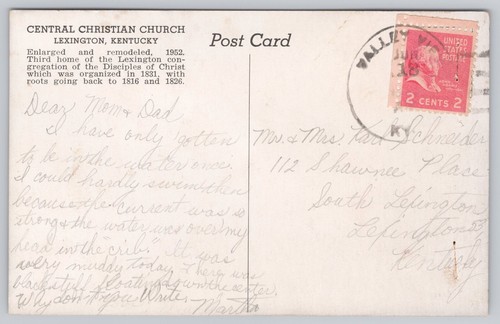 CENTRAL CHRISTIAN CHURCH
LEXINGTON, KENTUCKY
Enlarged and remodeled, 1952.
Third home of the Lexington con-
gregation of the Disciples of Christ
which was organized in 1831, with
roots going back to 1816 and 1826.
Post Card
VALLEY
JUN
KY
UNITED STATES POSTAGE
2 CENTS 2
Dear Mom & Dad,
I have only gotten
to be in the water once.
I could hardly swim then
because the current was so
strong & the water was over my
head in the "crib". It was
very muddy today. There was
floating down the center.
Why don't you write.
Martha
Mr. & Mrs. Karl Schneider
112 Shawnee Place
South Lexington
Lexington
Kentucky